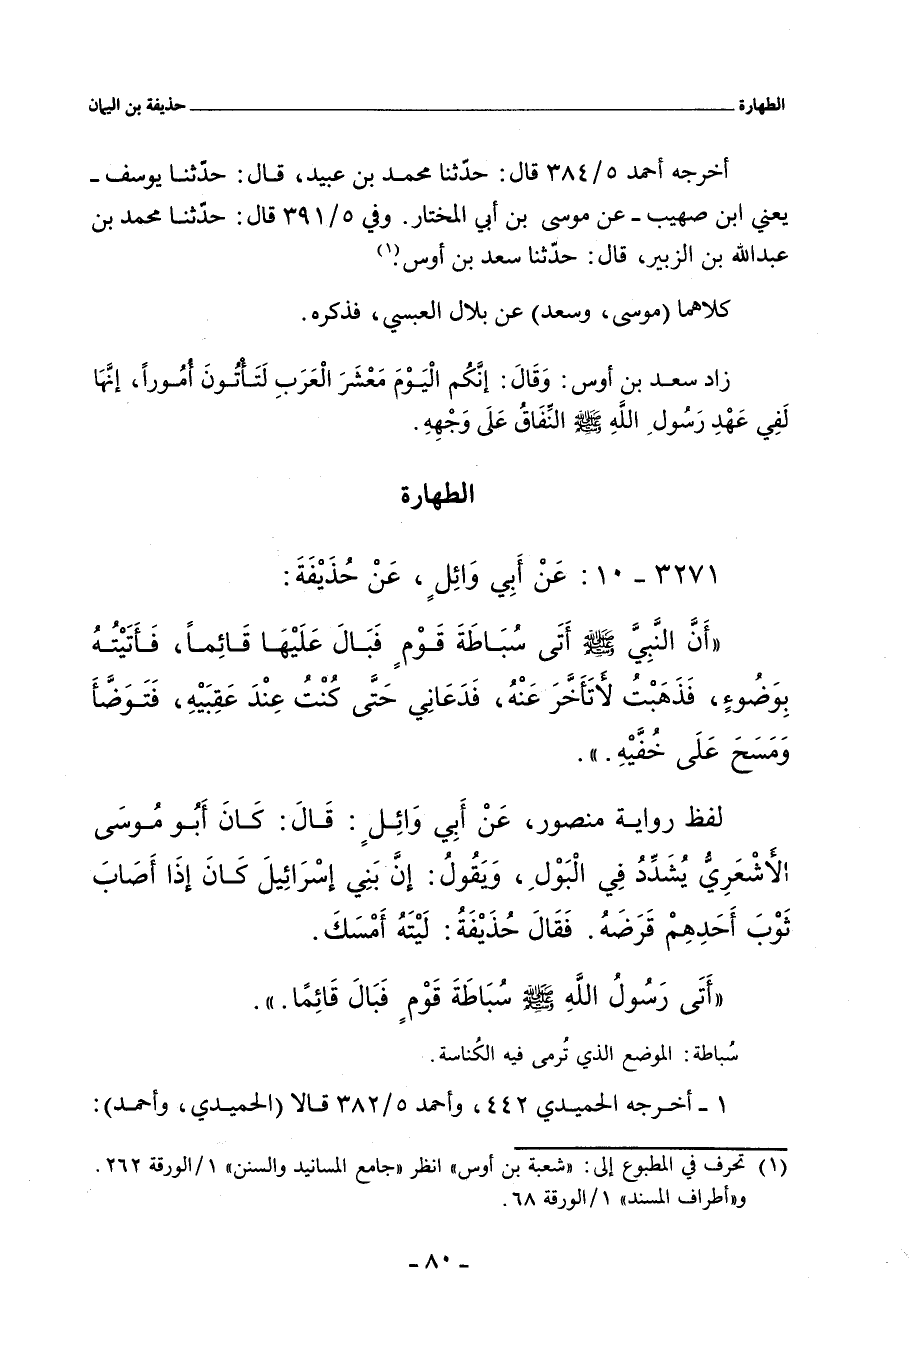 الطهارة ــــــــــــ حذيفة بن اليمان
أخرجه أحمد ٥/ ٣٨٤ قال: حدّثنا محمد بن عبيد، قال: حدّثنا يوسف ـ
يعني ابن صهيب ـ عن موسى بن أبي المختار. وفي ٥/ ٣٩١ قال: حدّثنا محمد بن
عبدالله بن الزبير، قال: حدّثنا سعد بن أوس.(١)
كلاهما (موسى، وسعد) عن بلال العبسي، فذكره.
زاد سعد بن أوس: وَقَالَ: إنَّكُم الْيَوْمَ مَعْشَرَ الْعَرَبِ لَتَأْتُونَ أُمُوراً، إنَّهَا
لَفِي عَهْدِ رَسُولِ اللَّهِ ﷺ النِّفَاقُ عَلَى وَجْهِهِ.
الطهارة
٣٢٧١ ـ ١٠: عَنْ أَبِي وَائِلٍ، عَنْ حُذَيْفَةَ:
«أَنَّ النَّبِيَّ ﷺ أَتَى سُبَاطَةَ قَوْمٍ فَبَالَ عَلَيْهَا قَائِماً، فَأَتَيْتُهُ
بِوَضُوءٍ، فَذَهَبْتُ لأَتَأَخَّرَ عَنْهُ، فَدَعَانِي حَتَّى كُنْتُ عِنْدَ عَقِبَيْهِ، فَتَوَضَّأَ
وَمَسَحَ عَلَى خُفَّيْهِ.».
لفظ رواية منصور، عَنْ أَبِي وَائِلٍ: قَالَ: كَانَ أَبُو مُوسَى
الأَشْعَرِيُّ يُشَدِّدُ فِي الْبَوْلِ، وَيَقُولُ: إنَّ بَنِي إسْرَائِيلَ كَانَ إذَا أَصَابَ
ثَوْبَ أَحَدِهِمْ قَرَضَهُ. فَقَالَ حُذَيْفَةُ: لَيْتَهُ أَمْسَكَ.
«أَتَى رَسُولُ اللَّهِ ﷺ سُبَاطَةَ قَوْمٍ فَبَالَ قَائِمًا.».
سُباطة: الموضع الذي تُرمى فيه الكُناسة.
١ ـ أخرجه الحميدي ٤٤٢، وأحمد ٥/ ٣٨٢ قالا (الحميدي، وأحمد):
(١) تحرف في المطبوع إلى: «شعبة بن أوس» انظر «جامع المسانيد والسنن» ١/ الورقة ٢٦٢.
و«أطراف المسند» ١/ الورقة ٦٨.
- ٨٠ -